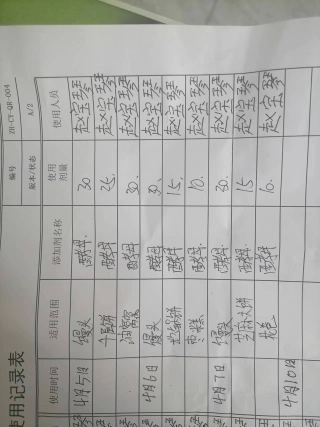 使用记录表
编号 ZH-CT-QR-004
版本/状态 A/2
使用时间 适用范围 添加剂名称 使用剂量 使用人员
4月5日 馒头 酵母 30 赵宝琴
千层饼 酵母 25 赵宝琴
油窝窝 酵母 30 赵宝琴
4月6日 馒头 酵母 30 赵宝琴
酵母 15 赵宝琴
枣糕 酵母 10 赵宝琴
4月7日 馒头 酵母 30 赵宝琴
芝麻大饼 酵母 15 赵宝琴
花卷 酵母 10 赵宝琴
4月10日